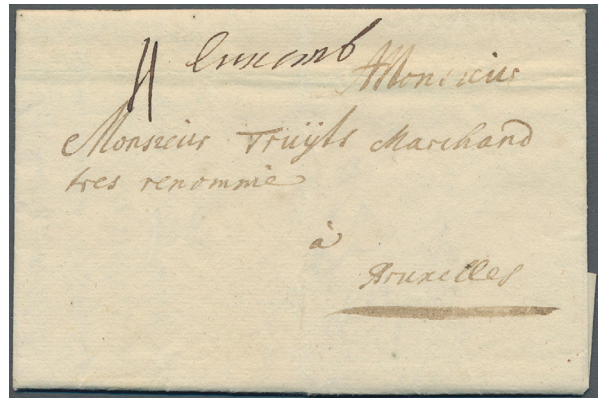 4 Luxemb
A Monsieur
Monsieur Truÿts Marchand
tres renommé
à
Bruxelles